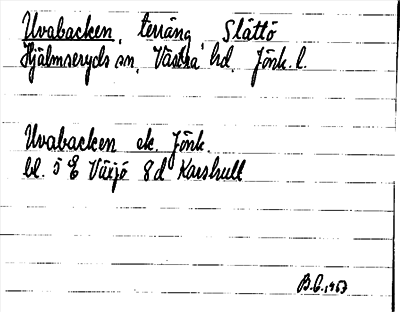 Uvabacken, terräng Slättö
Hjälmseryds sn, Västra hd, Jönk. l.
Uvabacken ek. Jönk.
bl. 5 E Växjö 8d Karshult
B.C. 1963